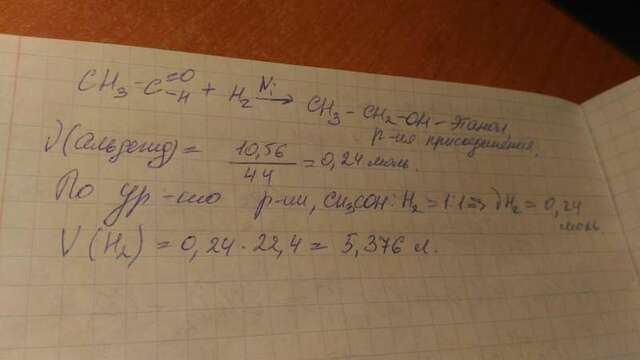 CH₃-C=O-H + H₂ Ni→ CH₃-CH₂-OH - Этанол,
р-ия присоединения.
ν(альдегид) = 10,56/44 = 0,24 моль.
По ур-нию р-ии, CH₃COH:H₂=1:1⇒νH₂=0,24 моль
V(H₂) = 0,24·22,4 = 5,376 л.